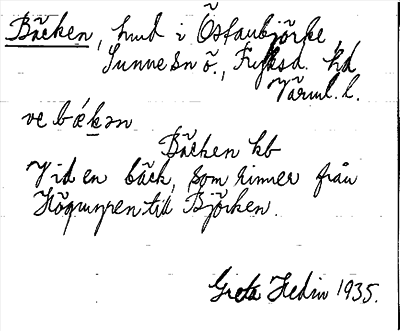 Bäcken, hmd i Östanbjörke,
Sunne sn ö., Fryksd. hd
Värml. l.
ve bǽkən
Bäcken kb
Vid en bäck, som rinner från
till Björken.
Greta Hedin 1935.